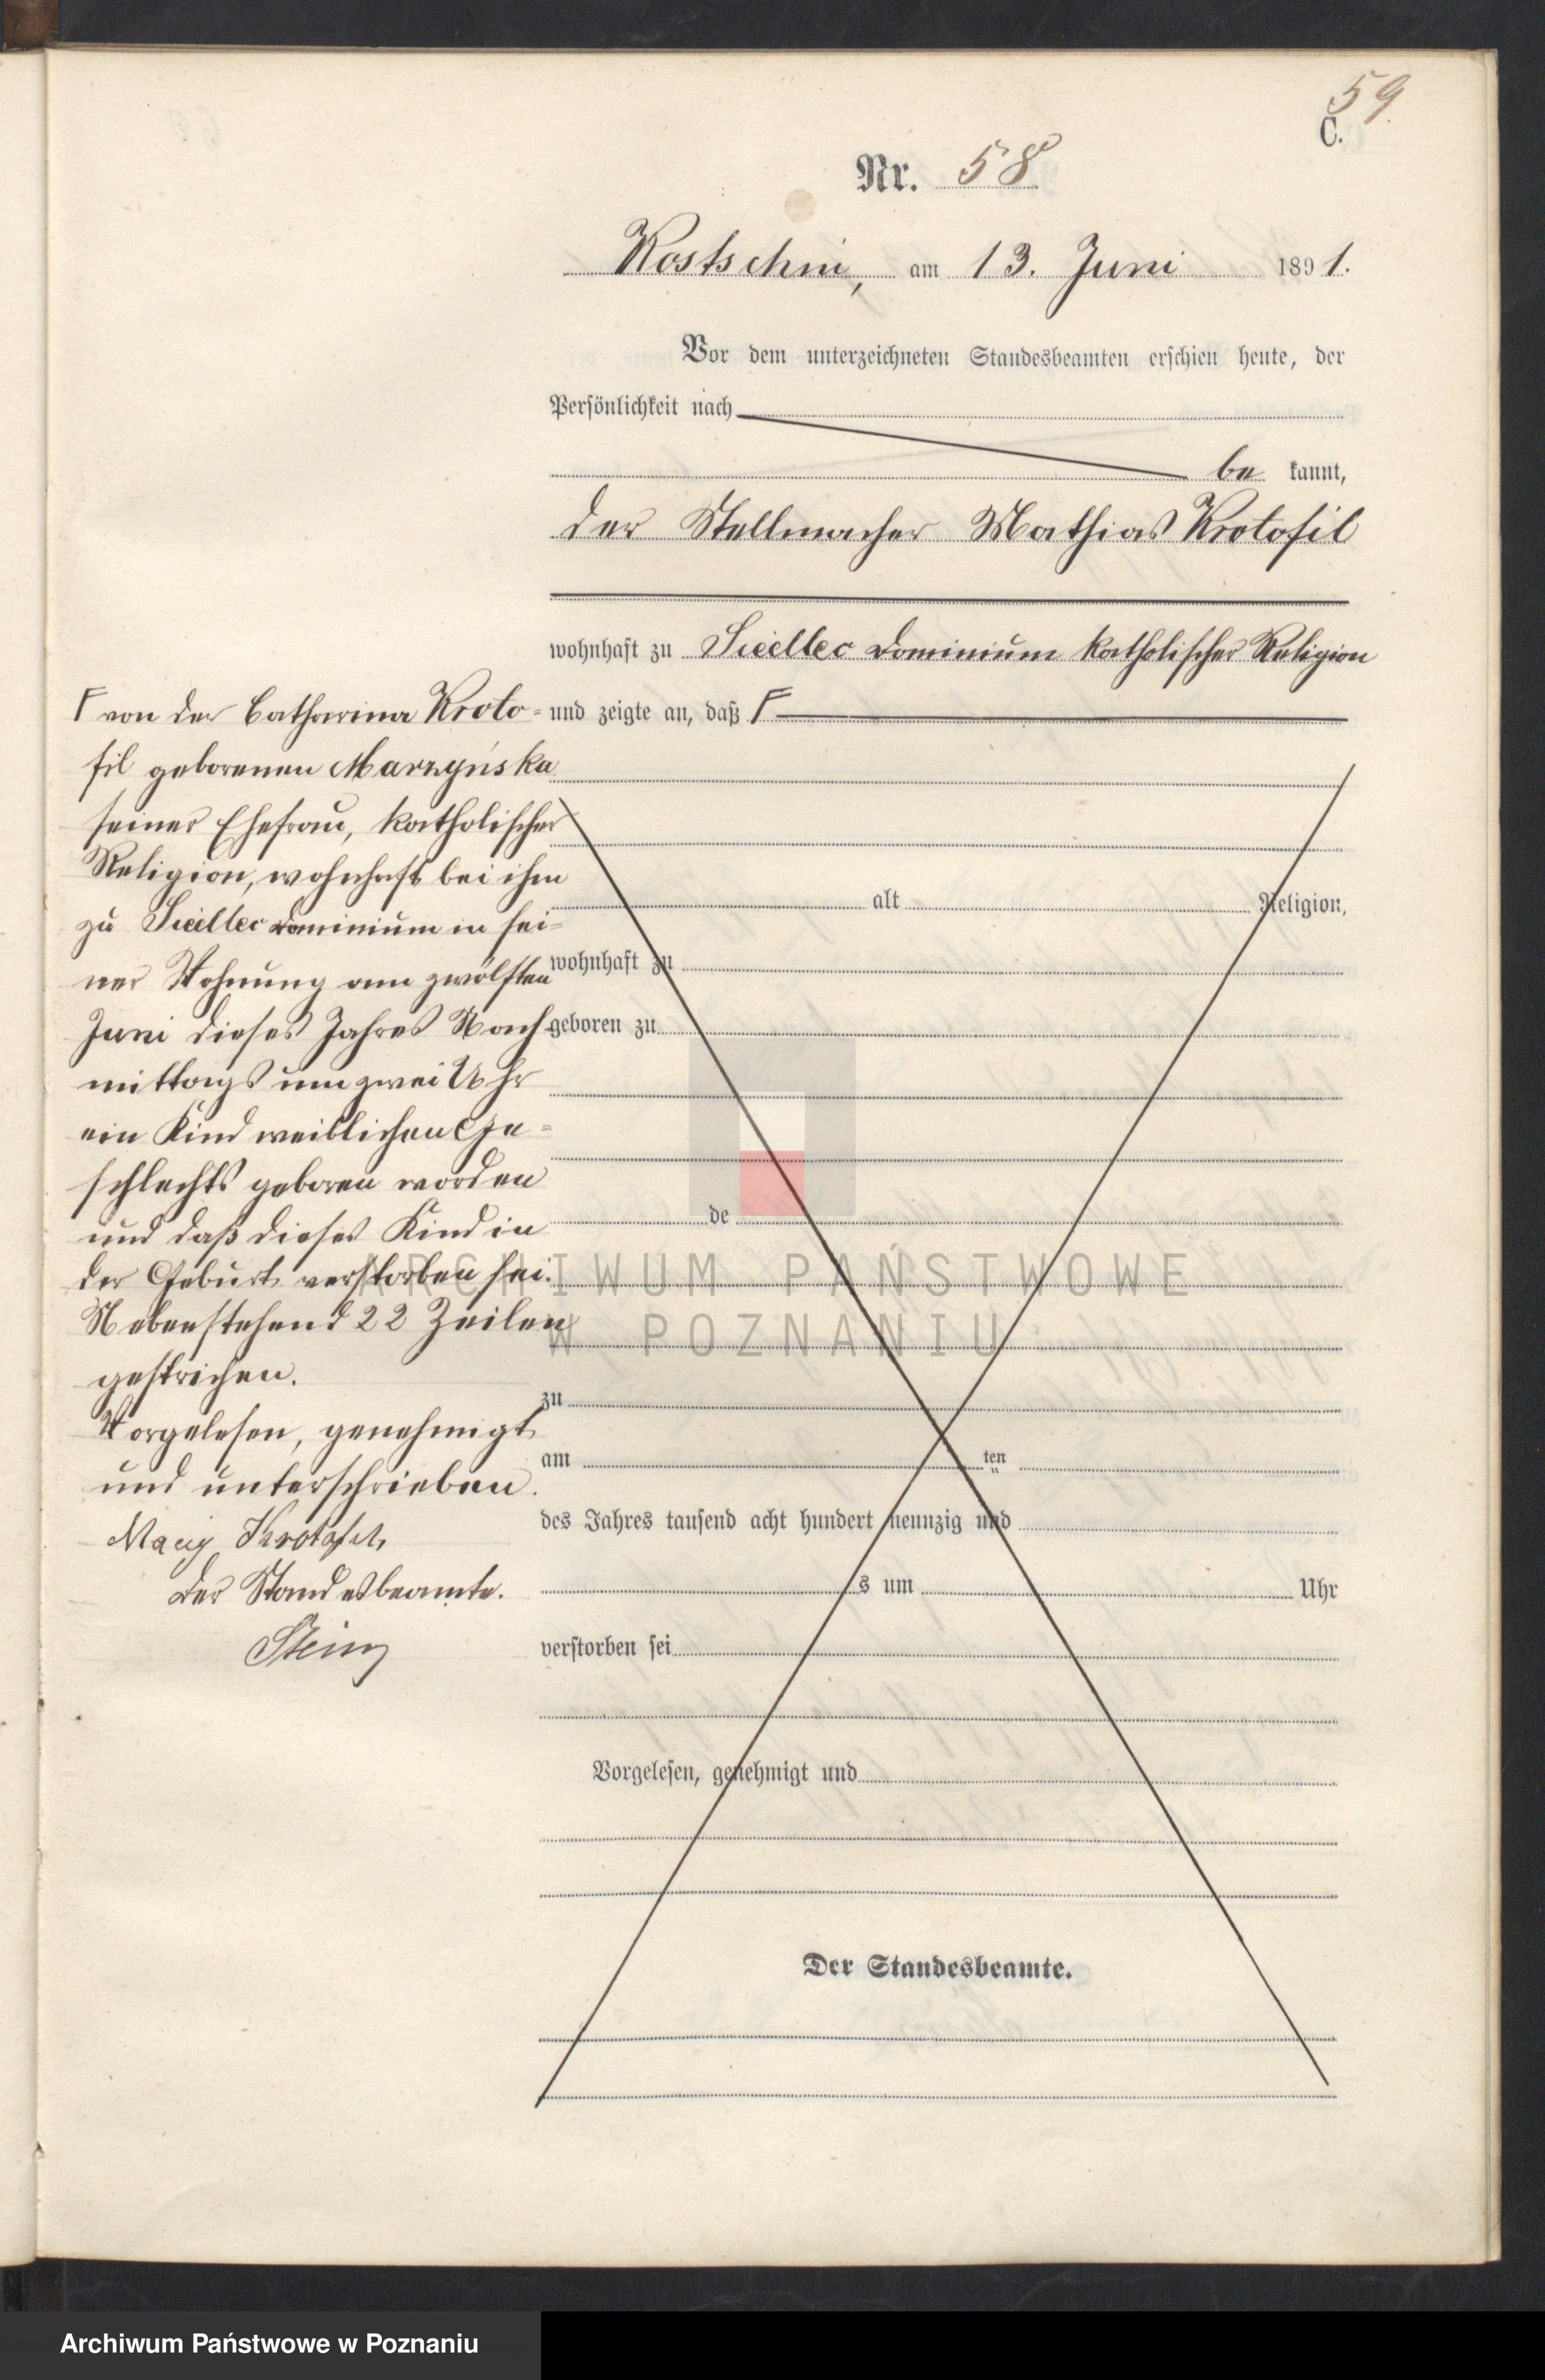 59
C.
Nr. 58
Kostschin, am 13. Juni 1891.
Vor dem unterzeichneten Standesbeamten erschien heute, der
Persönlichkeit nach
be kannt,
der Stellmacher Mathias Krotofil
wohnhaft zu Siedlec Dominium katholischer Religion
und zeigte an, daß Γ
Γ von der Catharina Kroto-
fil geborenen Marzyńska
seiner Ehefrau, katholischer
Religion, wohnhaft bei ihm
zu Siedlec Dominium in sei-
ner Wohnung am zwölften
Juni dieses Jahres Nach-
mittags um zwei Uhr
ein Kind weiblichen Ge-
schlechts geboren worden
und daß dieses Kind in
der Geburt verstorben sei.
Nebenstehend 22 Zeilen
gestrichen.
Vorgelesen, genehmigt
und unterschrieben.
Maciej Krotofil
Der Standesbeamte.
alt Religion,
wohnhaft zu
geboren zu
de
zu
am ten
des Jahres tausend acht hundert neunzig und
s um Uhr
verstorben sei
Vorgelesen, genehmigt und
Der Standesbeamte.
ARCHIWUM PAŃSTWOWE
W POZNANIU
Archiwum Państwowe w Poznaniu